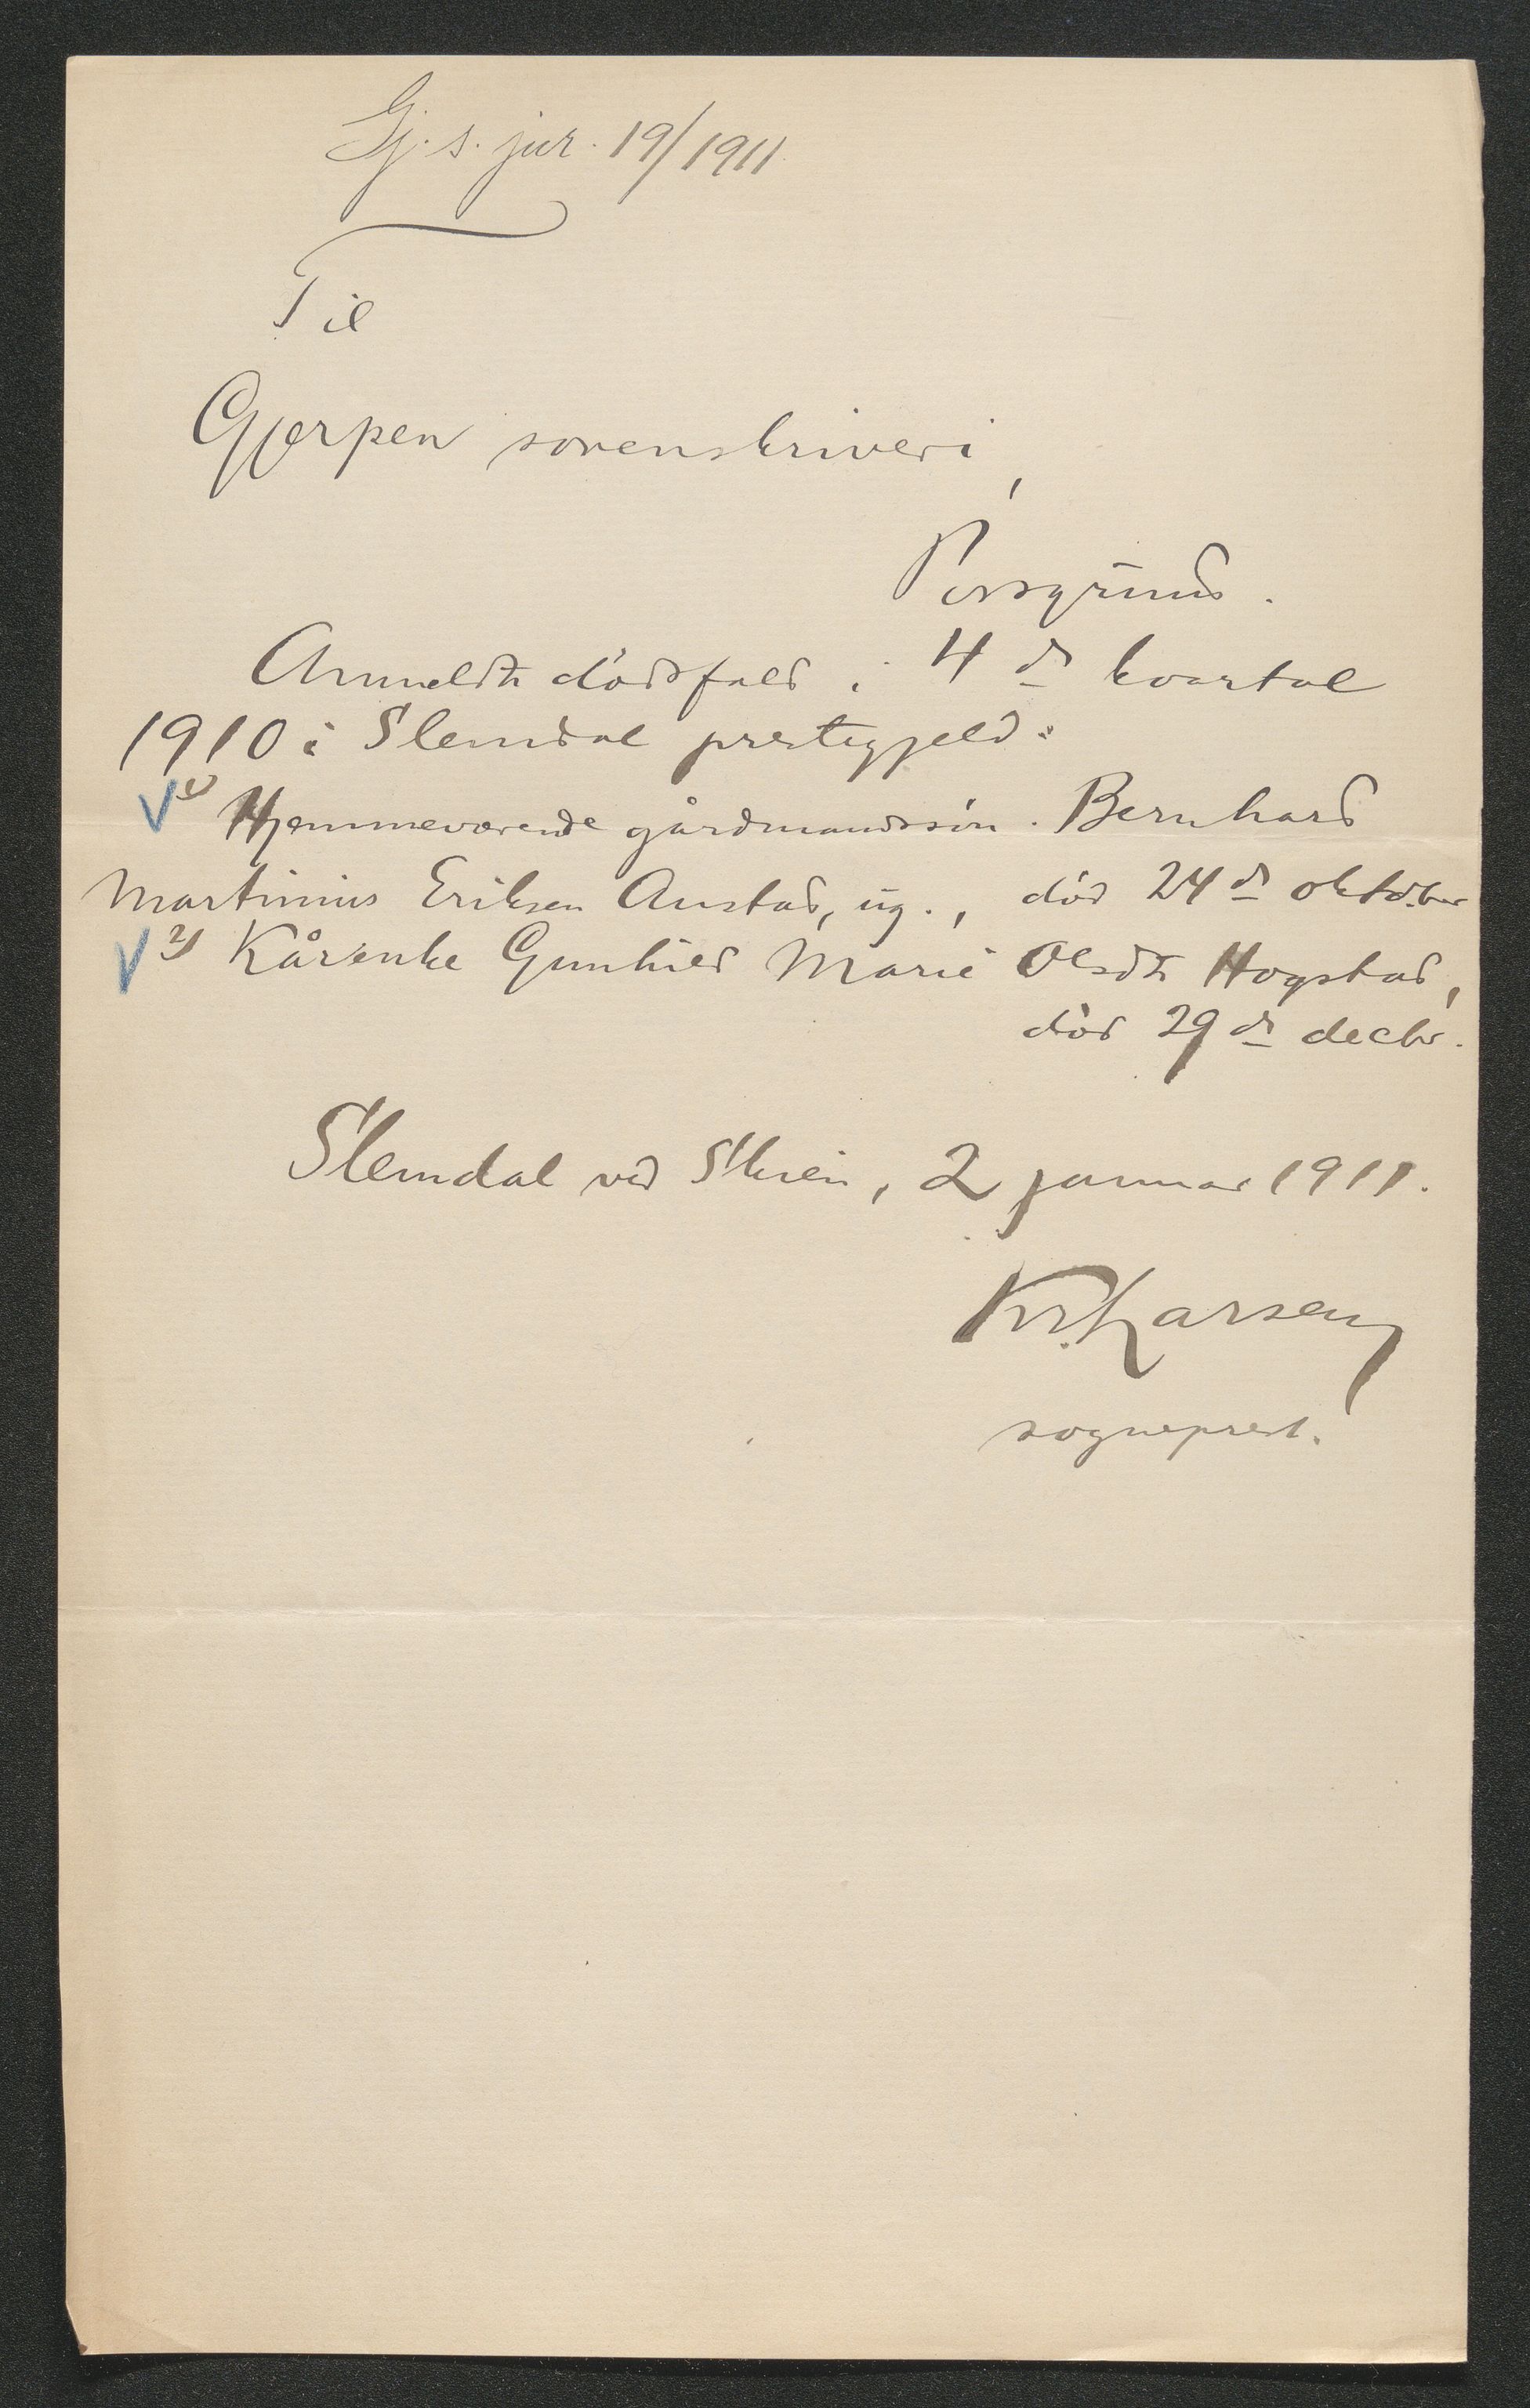 Gj. s. jur. 19/1911
Til
Gjerpen sorenskriveri,
Porsgrund.
Anmeldte dødsfald i 4de kvartal
1910 i Slemdal prestegjeld:
1) Hjemmeværende gårdmandssøn Bernhard
Martinius Eriksen Austad, ug., død 24de oktober
2) Kårenke Gunhild Marie Olsdtr Hogstad,
død 29de decbr.
Slemdal ved Skien, 2 januar 1911.
Kr. Larsen
sogneprest.